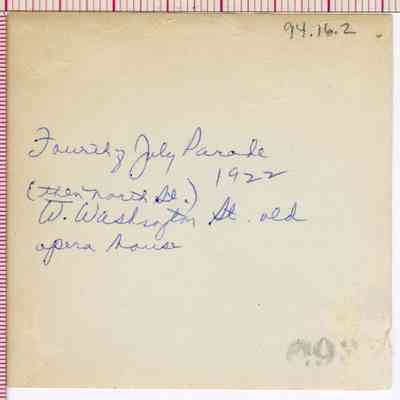 94.16.2
Fourth of July Parade
1922
(then North St.)
W. Washington St. old
opera house